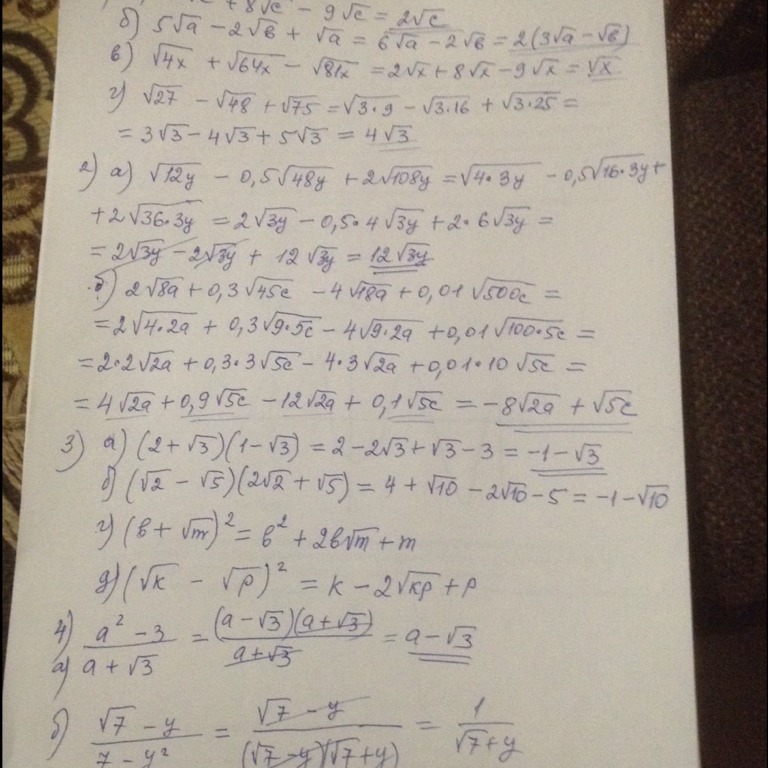 + 8√c − 9√c = 2√c
б) 5√a − 2√в + √a = 6√a − 2√в = 2(3√a − √в)
в) √4x + √64x − √81x = 2√x + 8√x − 9√x = √x
г) √27 − √48 + √75 = √3·9 − √3·16 + √3·25 =
= 3√3 − 4√3 + 5√3 = 4√3
2) а) √12y − 0,5√48y + 2√108y = √4·3y − 0,5√16·3y +
+ 2√36·3y = 2√3y − 0,5·4√3y + 2·6√3y =
= 2√3y − 2√3y + 12√3y = 12√3y
б) 2√8a + 0,3√45c − 4√18a + 0,01√500c =
= 2√4·2a + 0,3√9·5c − 4√9·2a + 0,01√100·5c =
= 2·2√2a + 0,3·3√5c − 4·3√2a + 0,01·10√5c =
= 4√2a + 0,9√5c − 12√2a + 0,1√5c = −8√2a + √5c
3) а) (2+√3)(1−√3) = 2 − 2√3 + √3 − 3 = −1 − √3
б) (√2 − √5)(2√2 + √5) = 4 + √10 − 2√10 − 5 = −1 − √10
г) (в + √m)² = в² + 2в√m + m
д) (√к − √p)² = к − 2√кp + p
4)
а) (a² − 3)/(a + √3) = ((a − √3)(a + √3))/(a + √3) = a − √3
б) (√7 − y)/(7 − y²) = (√7 − y)/((√7 − y)(√7 + y)) = 1/(√7 + y)